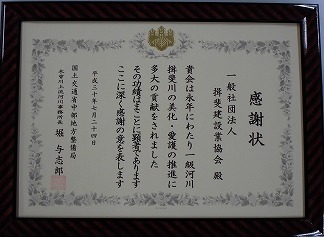 感謝状
一般社団法人
揖斐建設業協会 殿
貴会は永年にわたり一級河川
揖斐川の美化・愛護の推進に
多大の貢献をされました
その功績はまことに顕著であります
ここに深く感謝の意を表します
平成三十年七月二十四日
国土交通省中部地方整備局
木曽川上流河川事務所長
堀 与志郎